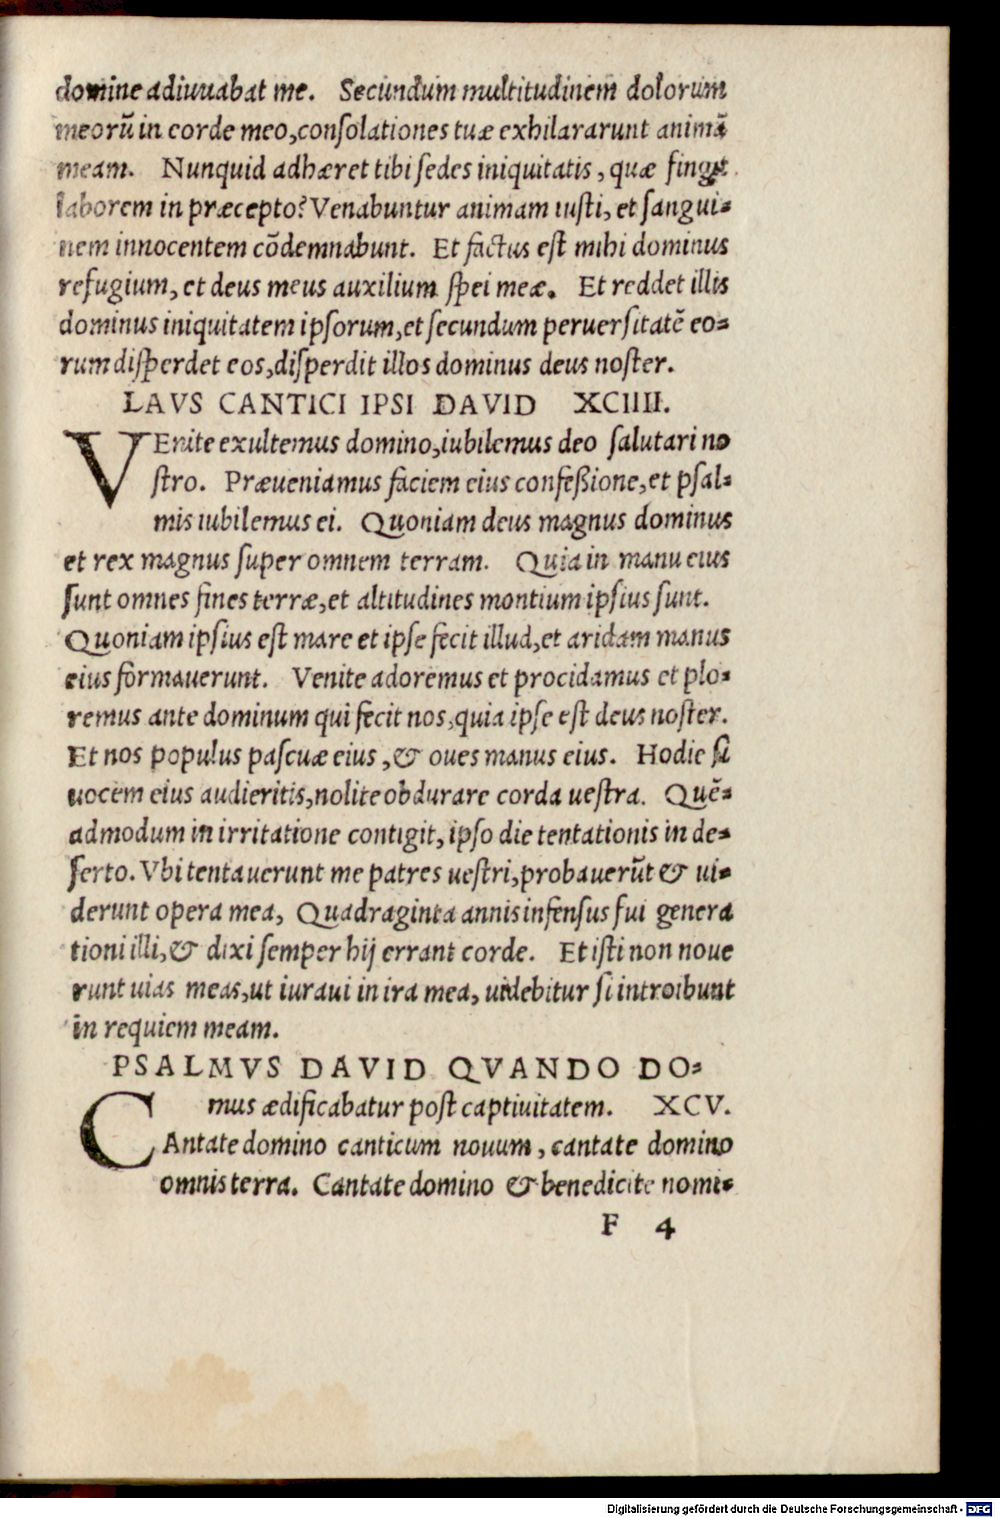 domine adiuuabat me. Secundum multitudinem dolorum
meorũ in corde meo,conſolationes tuæ exhilararunt animã
meam. Nunquid adhæret tibi ſedes iniquitatis, quæ fingit
laborem in præcepto? Venabuntur animam iuſti, et ſangui⸗
nem innocentem cõdemnabunt. Et factus eſt mihi dominus
refugium, et deus meus auxilium ſpei meæ. Et reddet illis
dominus iniquitatem ipſorum,et ſecundum peruerſitatẽ eo⸗
rum diſperdet eos,diſperdit illos dominus deus noſter.
LAVS CANTICI IPSI DAVID XCIIII.
VEnite exultemus domino,iubilemus deo ſalutari no
ſtro. Præueniamus faciem eius confeßione,et pſal⸗
mis iubilemus ei. Quoniam deus magnus dominus
et rex magnus ſuper omnem terram. Quia in manu eius
ſunt omnes fines terræ,et altitudines montium ipſius ſunt.
Quoniam ipſius eſt mare et ipſe fecit illud,et aridam manus
eius formauerunt. Venite adoremus et procidamus et plo⸗
remus ante dominum qui fecit nos,quia ipſe eſt deus noſter.
Et nos populus paſcuæ eius ,& oues manus eius. Hodie ſi
uocem eius audieritis,nolite obdurare corda ueſtra. Quẽ⸗
admodum in irritatione contigit, ipſo die tentationis in de⸗
ſerto. Vbi tentauerunt me patres ueſtri,probauerũt & ui⸗
derunt opera mea, Quadraginta annis infenſus fui genera
tioni illi,& dixi ſemper hij errant corde. Et iſti non noue
runt uias meas,ut iuraui in ira mea, uidebitur ſi introibunt
in requiem meam.
PSALMVS DAVID QVANDO DO⸗
mus ædificabatur poſt captiuitatem. XCV.
CAntate domino canticum nouum , cantate domino
omnis terra. Cantate domino & benedicite nomi⸗
F 4
Digitalisierung gefördert durch die Deutsche Forschungsgemeinschaft - DFG